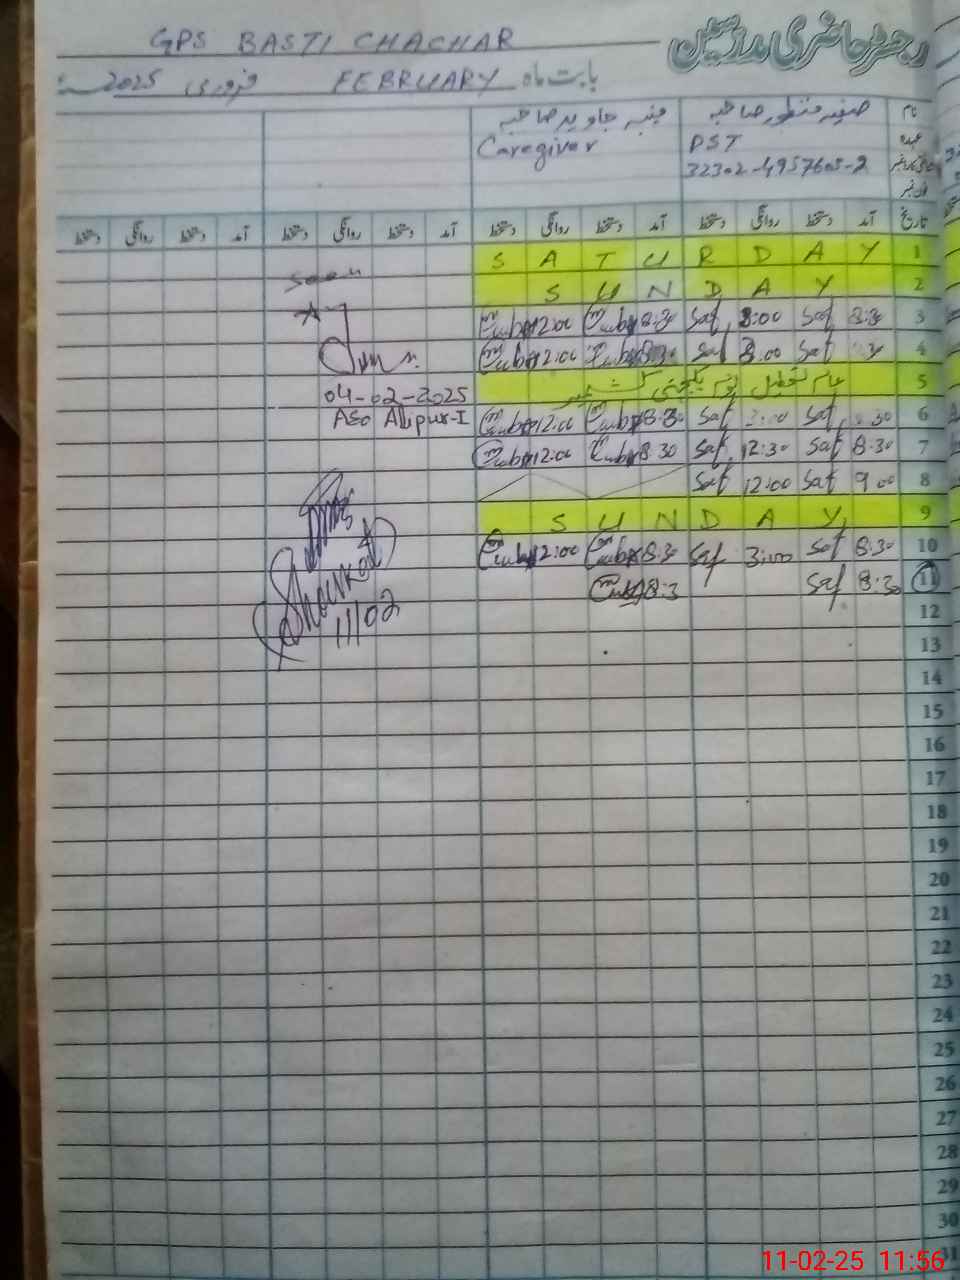 GPS BASTI CHACHAR رجسٹر حاضری مدرسین
بابت ماہ FEBRUARY فروری 2025
نام صفیہ منظور صاحبہ جاوید صاحبہ
عہدہ PST Caregiver
32302-4957605-2
تاریخ آمد دستخط روانگی دستخط آمد دستخط روانگی دستخط آمد دستخط روانگی دستخط آمد دستخط روانگی دستخط
1 SATURDAY
Seen
2 SUNDAY
3 8:30 Saf 3:00 Saf 8:30 12:00
4 30 Saf 3:00 Saf 12:00
5 عام تعطیل یوم یکجہتی کشمیر
04-02-2025
6 30 Saf Saf 8:30 12:00
AEO Alipur-I
7 8:30 Saf 12:30 Saf 8:30 12:00
8 9:00 Saf 12:00 Saf
9 SUNDAY
10 8:30 Saf 3:00 Saf 8:30 12:00
11 8:30 Saf 8:3
Shoukat
11/02
12
13
14
15
16
17
18
19
20
21
22
23
24
25
26
27
28
29
30
31
11-02-25 11:56